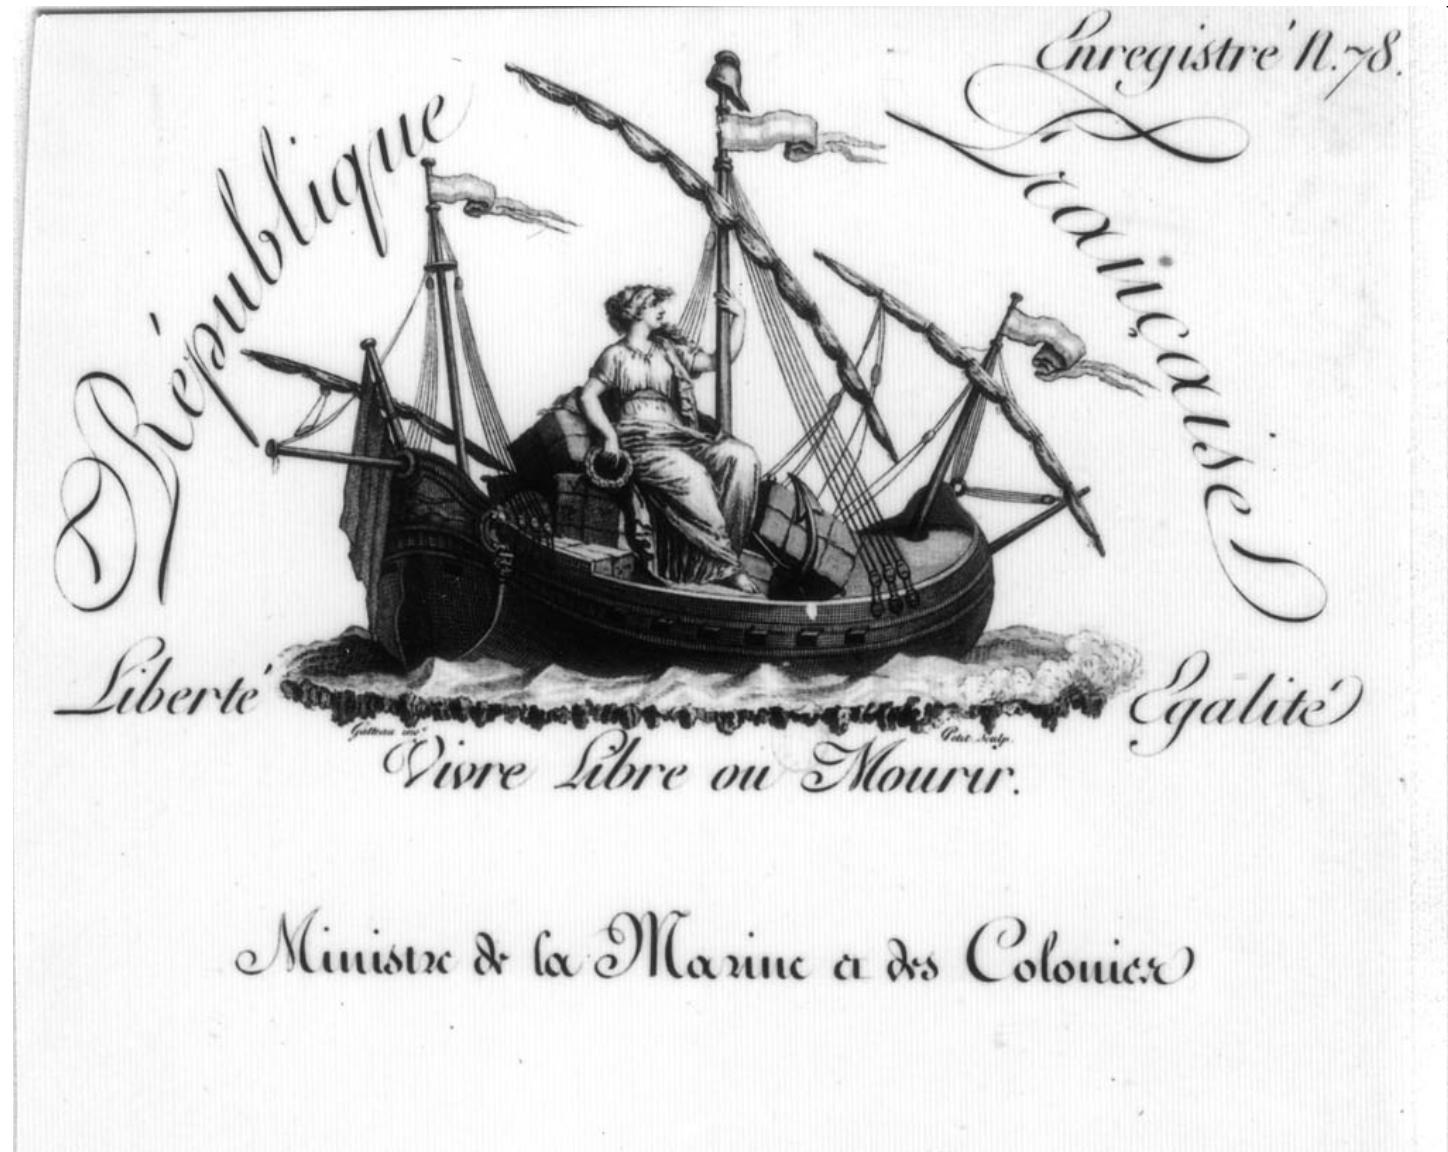 Enregistré N. 78.
République Française
Liberté
Egalité
Gatteau inv.
Petit Sculp.
Vivre Libre ou Mourir.
Ministre de la Marine et des Colonies